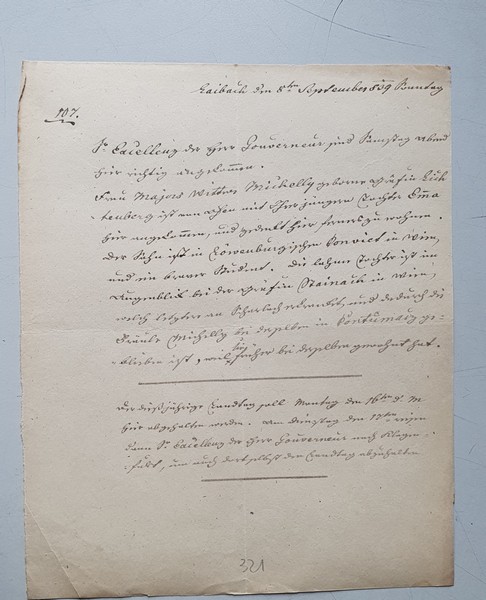 Laibach den 8ten September 839 Sonntag
107.
Sr Excellenz der Herr Gouverneur sind Samstag Abend
hier richtig angekommen.
Frau Majors Wittwe Michelly geborne Gräfin Lich
tenberg ist von mit ihrer jüngern Tochter Emma
hier angekommen, und gedenkt hier ferners zu wohnen.
Der Sohn ist in Löwenburgischen Convict in Wien,
und ein braver Student. Die Tochter ist im
Augenblick bei der Gräfin Stainach in Wien,
welch letztere an Scharlach erkrankt, und dadurch die
Fräule Michelly bei derselben in Contumatz ge-
blieben ist, weil sie früher bei derselben gewohnt hat.
Der dießjährige Landtag soll Montag den 16ten d. M.
hier abgehalten werden. Am Dienstag den 17ten reisen
dann Sr Excellenz der Herr Gouverneur nach Klagen-
furt, um auch dortselbst den Landtag abzuhalten.
321